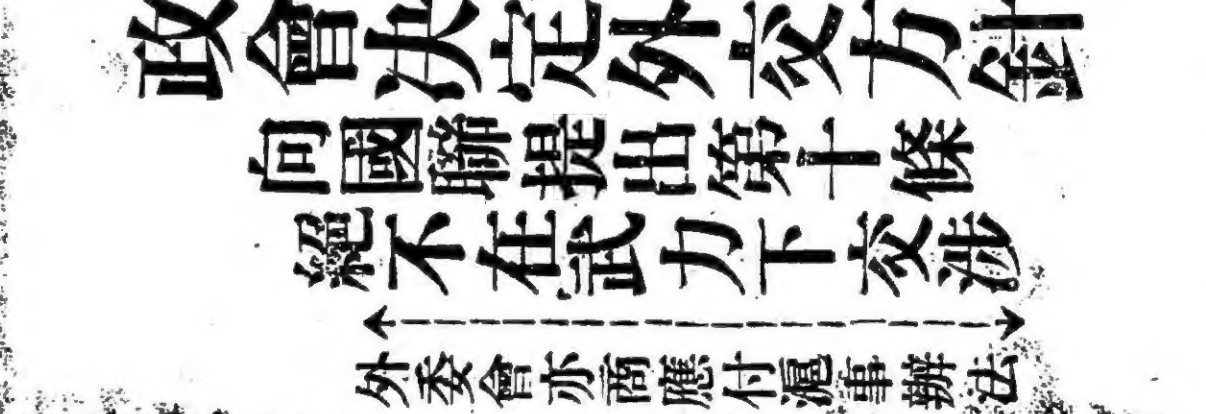 政會決定外交方針
向國聯提出第十條
絕不在武力下交涉
外委會亦商應付滬事辦法